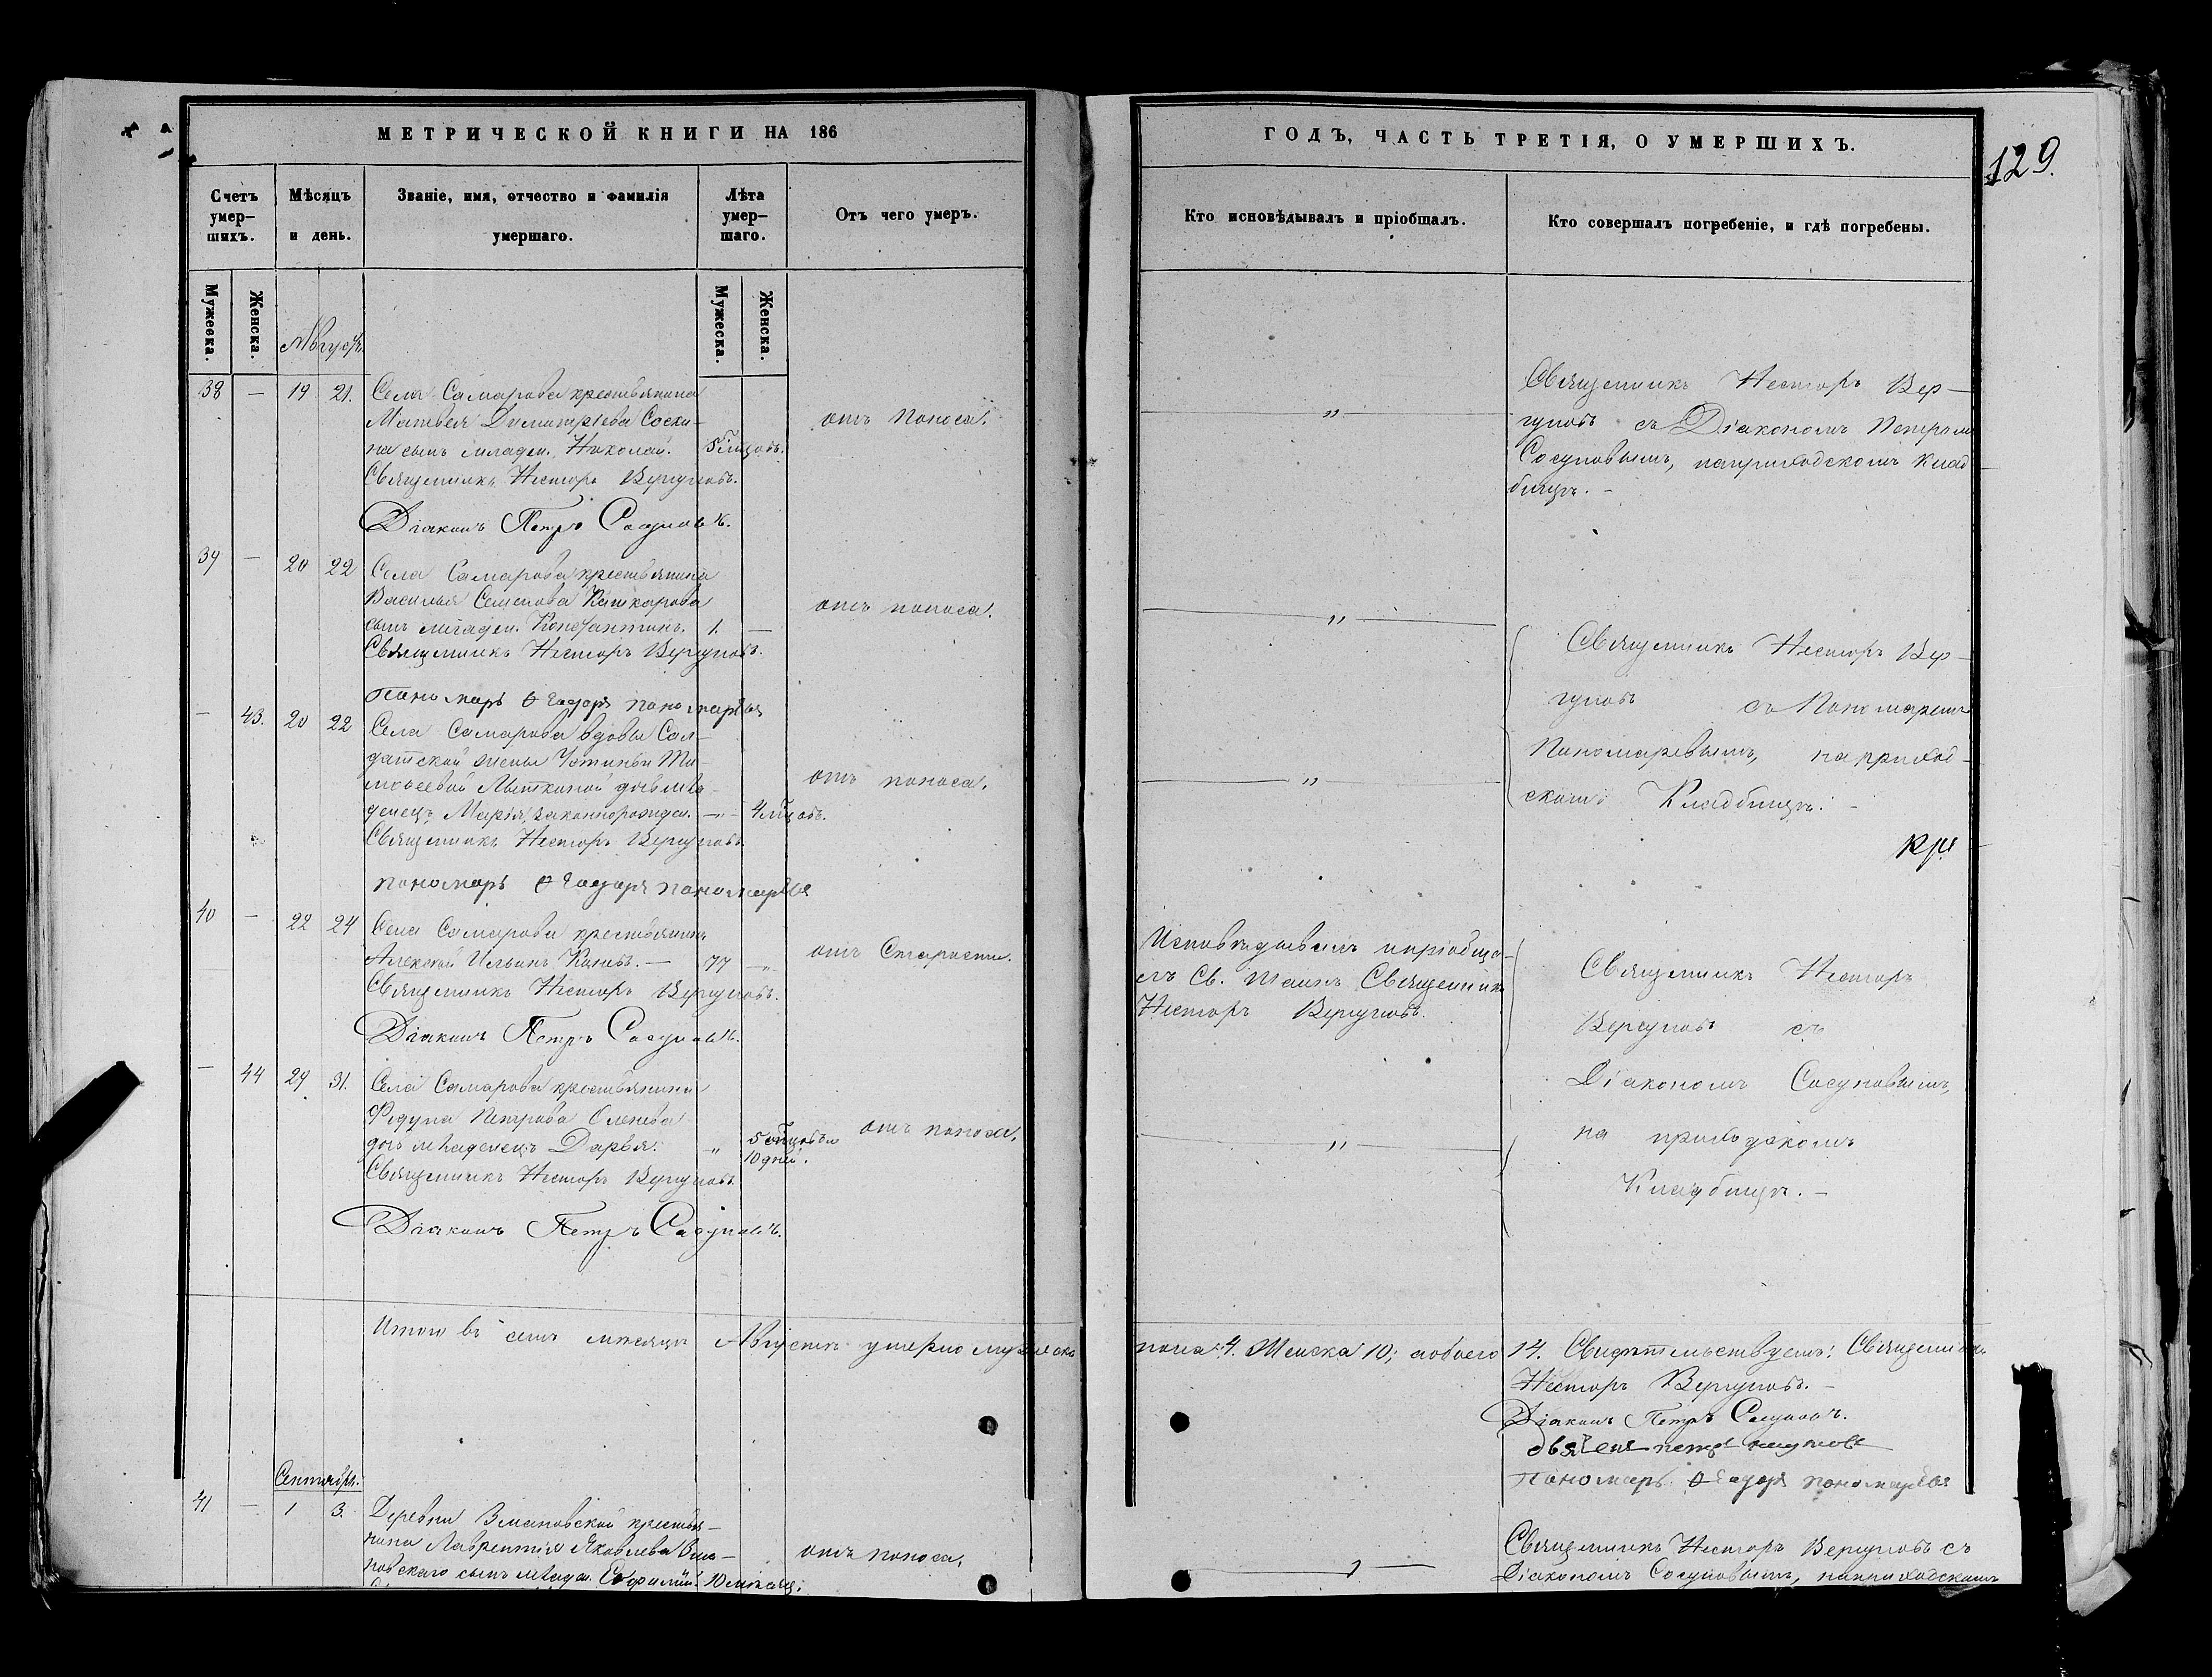 МЕТРИЧЕСКОЙ КНИГИ НА 186
Счетъ умер-шихъ.
Мѣсяцъ и день.
Званіе, имя, отчество и фамилія умершаго.
Лѣта умер-шаго.
Отъ чего умеръ.
Мужеска.
Женска.
Мужеска.
Женска.
Августъ.
38 — 19 21. Села Самарова крестьянина
Матвея Димитріева Соски-
на сынъ младен. Николай. 5 мцовъ. отъ поноса.
Священникъ Несторъ Вергуновъ.
Діаконъ Петръ Сосуновъ.
39 — 20 22 Села Самарова крестьянина
Василья Семенова Кашкарова отъ поноса.
сынъ младен. Константинъ. 1. —
Священникъ Несторъ Вергуновъ.
Пономарь Ѳеодоръ Пономаревъ
— 43. 20 22 Села Самарова вдовы Сол-
датской жены Устиньи Ти-
моѳеевой дочь мла- отъ поноса.
денецъ Марія, законнорожден. —„— 4 мцовъ.
Священникъ Несторъ Вергуновъ.
пономарь Ѳеодоръ пономаревъ
40 — 22 24 Села Самарова крестьянинъ
Алексѣй Ильинъ — 77 —„ отъ Старости.
Священникъ Несторъ Вергуновъ.
Діаконъ Петръ Сосуновъ.
— 44 29 31. Села Самарова крестьянина
Петрова
дочь младенецъ Дарья. „ 5 мцовъ и отъ поноса.
10 дней.
Священникъ Несторъ Вергуновъ.
Діаконъ Петръ Сосуновъ.
Итого въ семъ мѣсяцѣ Августѣ умерло мужеска
Сентябрь.
41 — 1 3. Деревни Змановской крестья-
нина Лаврентія Яковлева Зма-
новскаго сынъ младен. 10 мѣсяц. отъ поноса.
ГОДЪ, ЧАСТЬ ТРЕТІЯ, О УМЕРШИХЪ.
129.
Кто исповѣдывалъ и пріобщалъ.
Кто совершалъ погребеніе, и гдѣ погребены.
„
Священникъ Несторъ Вер-
гуновъ съ Діакономъ Петромъ
Сосуновымъ, на приходскомъ клад
бищѣ. —
„
Священникъ Несторъ Вер-
гуновъ съ Пономаремъ
„
Пономаревымъ, на приход-
скомъ Кладбищѣ. —
Исповѣдывалъ и пріобща-
лъ Св. Таинъ Священникъ
Несторъ Вергуновъ.
Священникъ Несторъ
Вергуновъ съ
Діакономъ Сосуновымъ,
„
на приходскомъ
Кладбищѣ. —
пола 4. Женска 10; а обоего 14. Свидѣтельствуемъ: Священникъ
Несторъ Вергуновъ. —
Діаконъ Петръ Сосуновъ.
Пономарь Ѳеодоръ пономаревъ
Священникъ Несторъ Вергуновъ съ
Діакономъ Сосуновымъ, на приходскомъ